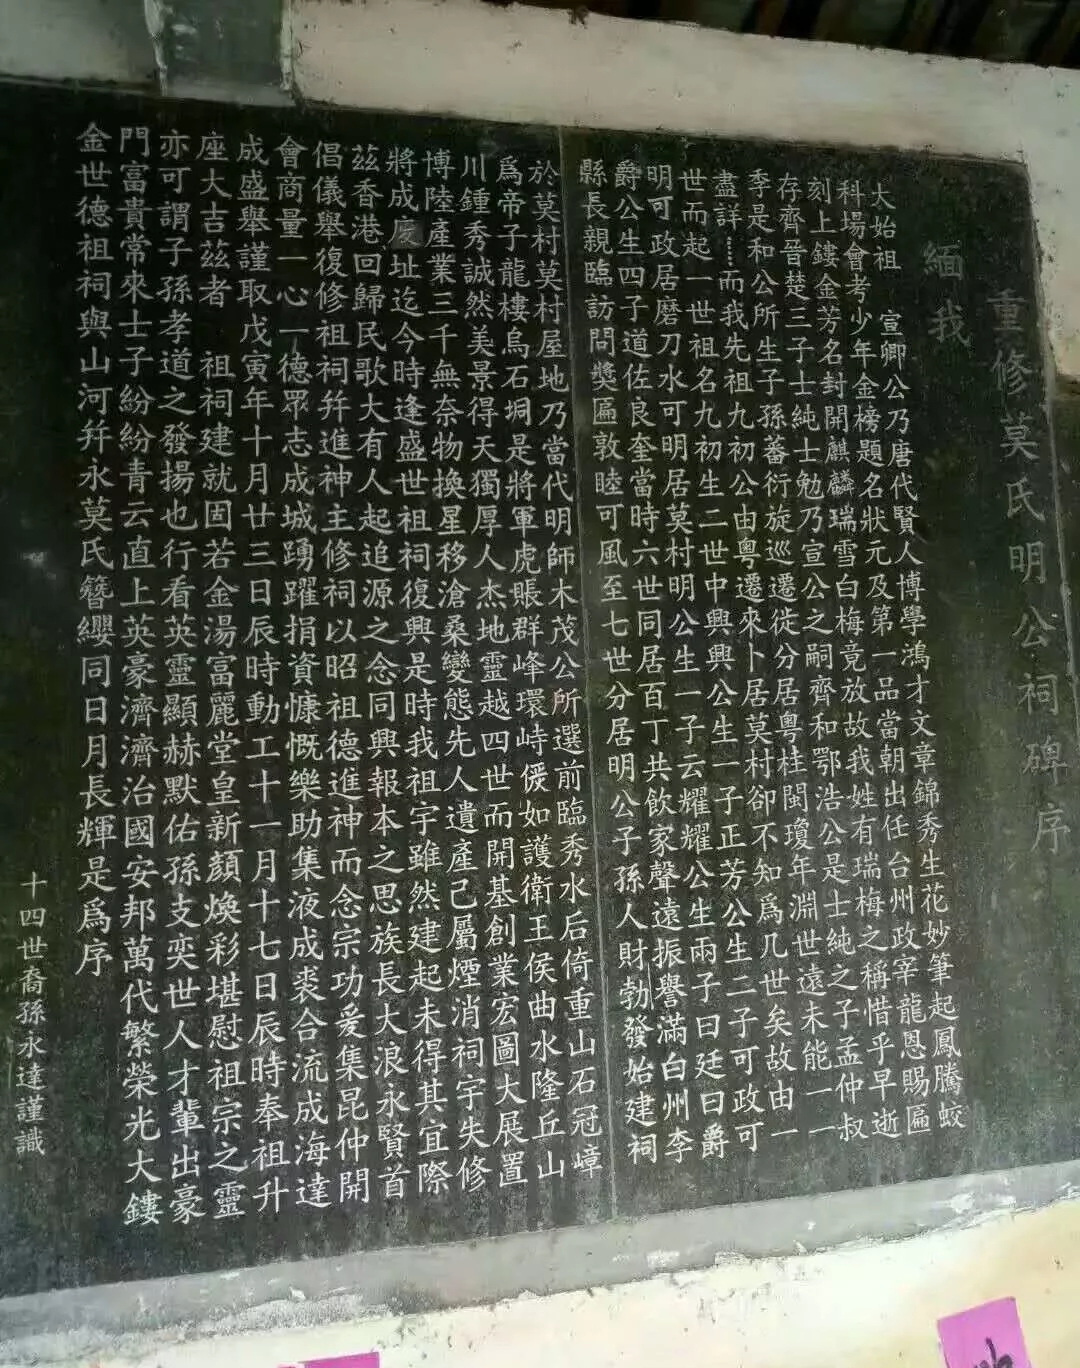 重修莫氏明公祠碑序
緬我
太始祖 宣卿公乃唐代賢人博學鴻才文章錦秀生花妙筆起鳳騰蛟
科場會考少年金榜題名狀元及第一品當朝出任台州政宰龍恩賜匾
刻上鏤金芳名封開麒麟瑞雪白梅竟放故我姓有瑞梅之稱惜乎早逝
存齊晉楚三子士純士勉乃宣公之嗣齊和鄂浩公是士純之子孟仲叔
季是和公所生子孫蕃衍旋巡遷徙分居粵桂閩瓊年淵世遠未能一一
盡詳……而我先祖九初公由粵遷來卜居莫村卻不知爲几世矣故由一
世而起一世祖名九初生二世中興興公生一子正芳公生二子可政可
明可政居磨刀水可明居莫村明公生一子云耀耀公生兩子曰廷曰爵
爵公生四子道佐良奎當時六世同居百丁共飲家聲遠振譽滿白州李
縣長親臨訪問獎匾敦睦可風至七世分居明公子孫人財勃發始建祠
於莫村莫村屋地乃當代明師木茂公所選前臨秀水后倚重山石冠嶂
爲帝子龍樓烏石垌是將軍虎賬群峰環峙儼如護衛王侯曲水隆丘山
川鍾秀誠然美景得天獨厚人杰地靈越四世而開基創業宏圖大展置
博陸產業三千無奈物換星移滄桑變態先人遺產己屬煙消祠宇失修
將成廢址迄今時逢盛世祖祠復興是時我祖宇雖然建起未得其宜際
茲香港回歸民歌大有人起追源之念同興報本之思族長大浪永賢首
倡儀舉復修祖祠幷進神主修祠以昭祖德進神而念宗功爰集昆仲開
會商量一心一德眾志成城踴躍捐資慷慨樂助集液成裘合流成海達
成盛舉謹取戊寅年十月廿三日辰時動工十一月十七日辰時奉祖升
座大吉茲者 祖祠建就固若金湯富麗堂皇新顏煥彩堪慰祖宗之靈
亦可謂子孫孝道之發揚也行看英靈顯赫默佑孫支奕世人才輩出豪
門富貴常來士子紛紛青云直上英豪濟濟治國安邦萬代繁榮光大鏤
金世德祖祠與山河幷永莫氏簪纓同日月長輝是爲序
十四世裔孫永達謹識